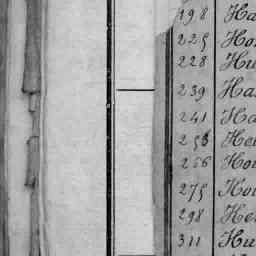 198 Ha
225 Ho
228 Hu
239 Ha
241 Ha
253 He
256 Ho
275 Ho
298 He
311 Hu